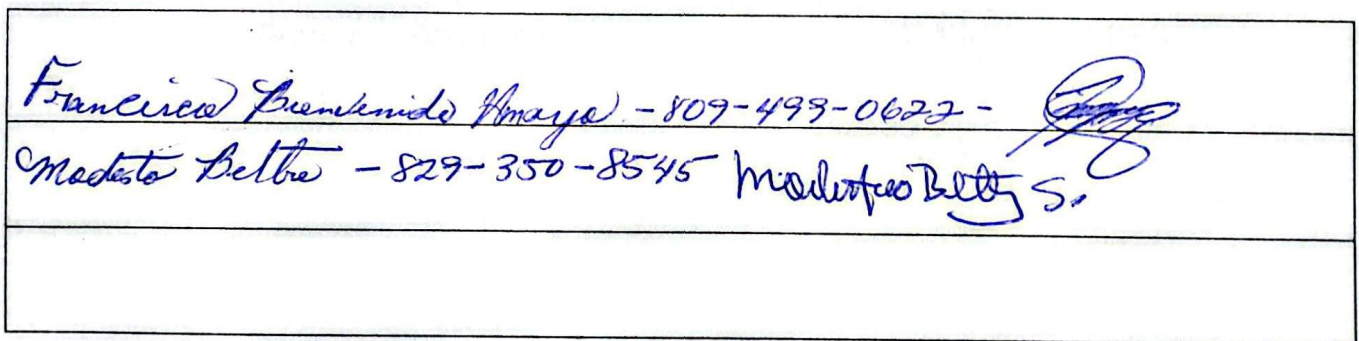 Francisco Bienvenido Amaya - 809-499-0622 -
Modesto Beltre - 829-350-8545